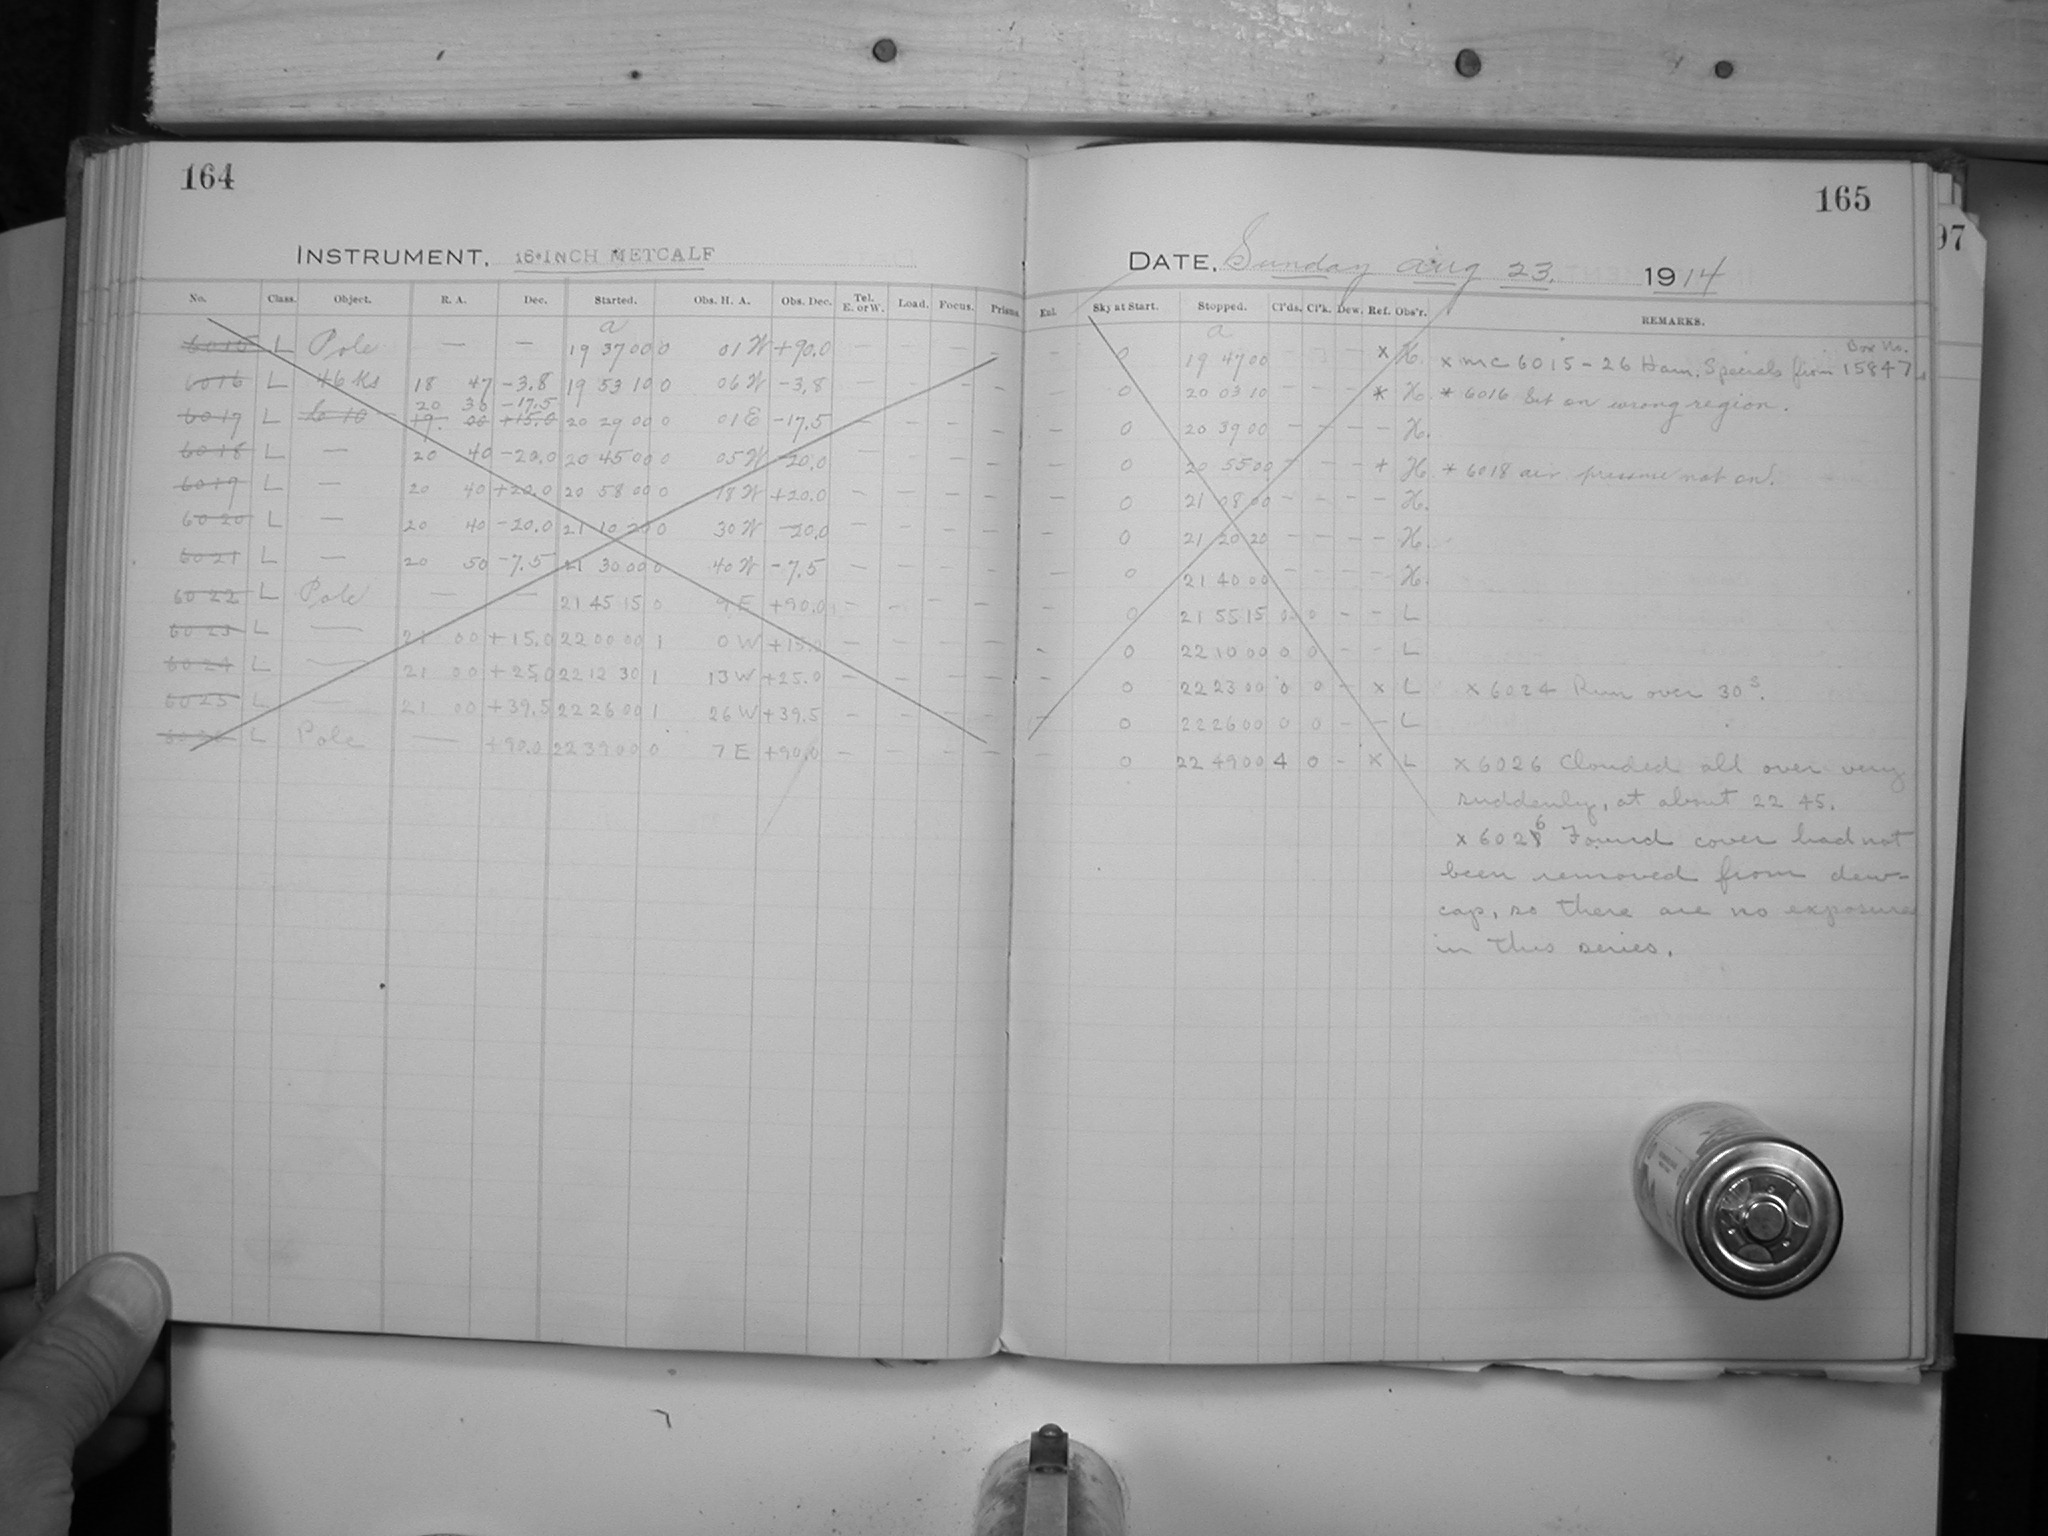 164
INSTRUMENT. 16-INCH METCALF
No. Class. Object. R. A. Dec. Started. Obs. H. A. Obs. Dec. Tel. E. or W. Load. Focus. Prisms
a
6015 L Pole — — 19 37 00 0 01 W +90.0 — —
6016 L 46 Ks 18 47 -3.8 19 53 10 0 06 W -3.8 — — — —
20 36 -17.5
6017 L 19 00 +15.0 20 29 00 0 01 E -17.5 — — — —
6018 L — 20 40 -20.0 20 45 00 0 05 W -20.0 — — — —
6019 L — 20 40 +20.0 20 58 00 0 18 W +20.0 — — — —
6020 L — 20 40 -20.0 21 10 20 0 30 W -20.0 — — — —
6021 L — 20 50 -7.5 21 30 00 0 40 W -7.5 — — — —
6022 L Pole — — 21 45 15 0 9 E +90.0 — — — —
6023 L — 21 00 +15.0 22 00 00 1 0 W +15.0 — — — —
6024 L — 21 00 +25.0 22 12 30 1 13 W +25.0 — — — —
6025 L — 21 00 +39.5 22 26 00 1 26 W +39.5 — — — —
6026 L Pole — +90.0 22 39 00 0 7 E +90.0 — — — —
165
DATE. Sunday Aug 23. 1914
Enl. Sky at Start. Stopped. Cl'ds. Cl'k. Dew. Ref. Obs'r. REMARKS.
a
Box No.
— 0 19 47 00 — — x H. x mc 6015-26 Ham. Specials from 15847
— 0 20 03 10 — — — * H. * 6016 Set on wrong region.
— 0 20 39 00 — — — — H.
— 0 20 55 00 — — — * H. * 6018 air pressure not on.
— 0 21 08 00 — — — — H.
— 0 21 20 20 — — — — H.
— 0 21 40 00 — — — — H.
— 0 21 55 15 0 0 — — L
— 0 22 10 00 0 0 — — L
— 0 22 23 00 0 0 — x L x 6024 Run over 30s.
— 0 22 26 00 0 0 — — L
— 0 22 49 00 4 0 — x L x 6026 Clouded all over very
suddenly, at about 22 45.
x 6026 Found cover had not
been removed from dew-
cap, so there are no exposures
in this series.
97